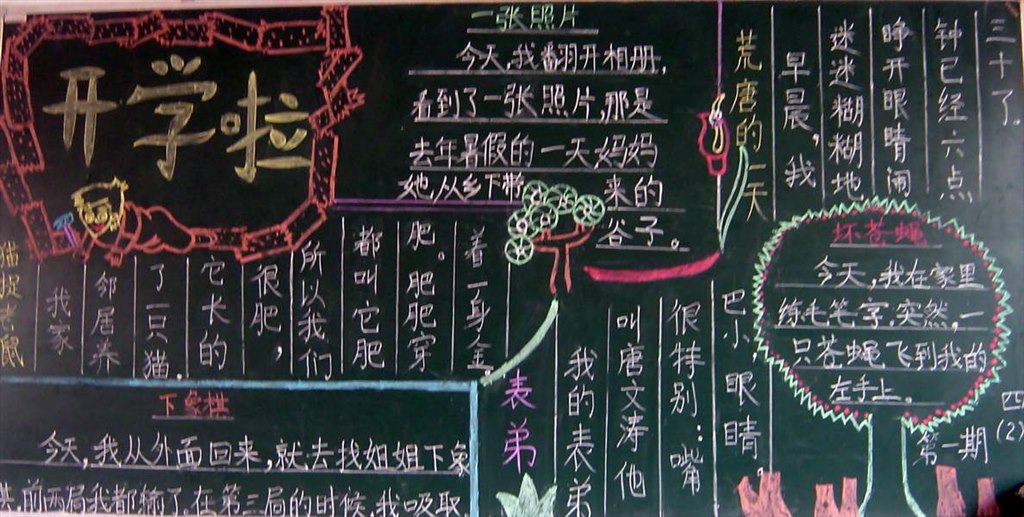 开学啦
一张照片
今天,我翻开相册,
看到了一张照片,那是
去年暑假的一天妈妈
她,从乡下带来的
谷子。
荒唐的一天
早晨,我
迷迷糊糊地
睁开眼睛闹
钟已经六点
三十了.
猫捉老鼠
我家
邻居养
了一只猫.
它长的
很肥,
所以我们
都叫它肥
肥。肥肥穿
着一身金
下象棋
今天,我从外面回来,就去找姐姐下象
棋.前两局我都输了.在第三局的时候,我吸取
表弟
我的表弟
叫唐文涛他
很特别:嘴
巴小,眼睛
坏苍蝇
今天,我在家里
练毛笔字.突然,一
只苍蝇飞到我的
左手上。
第一期
四(2)